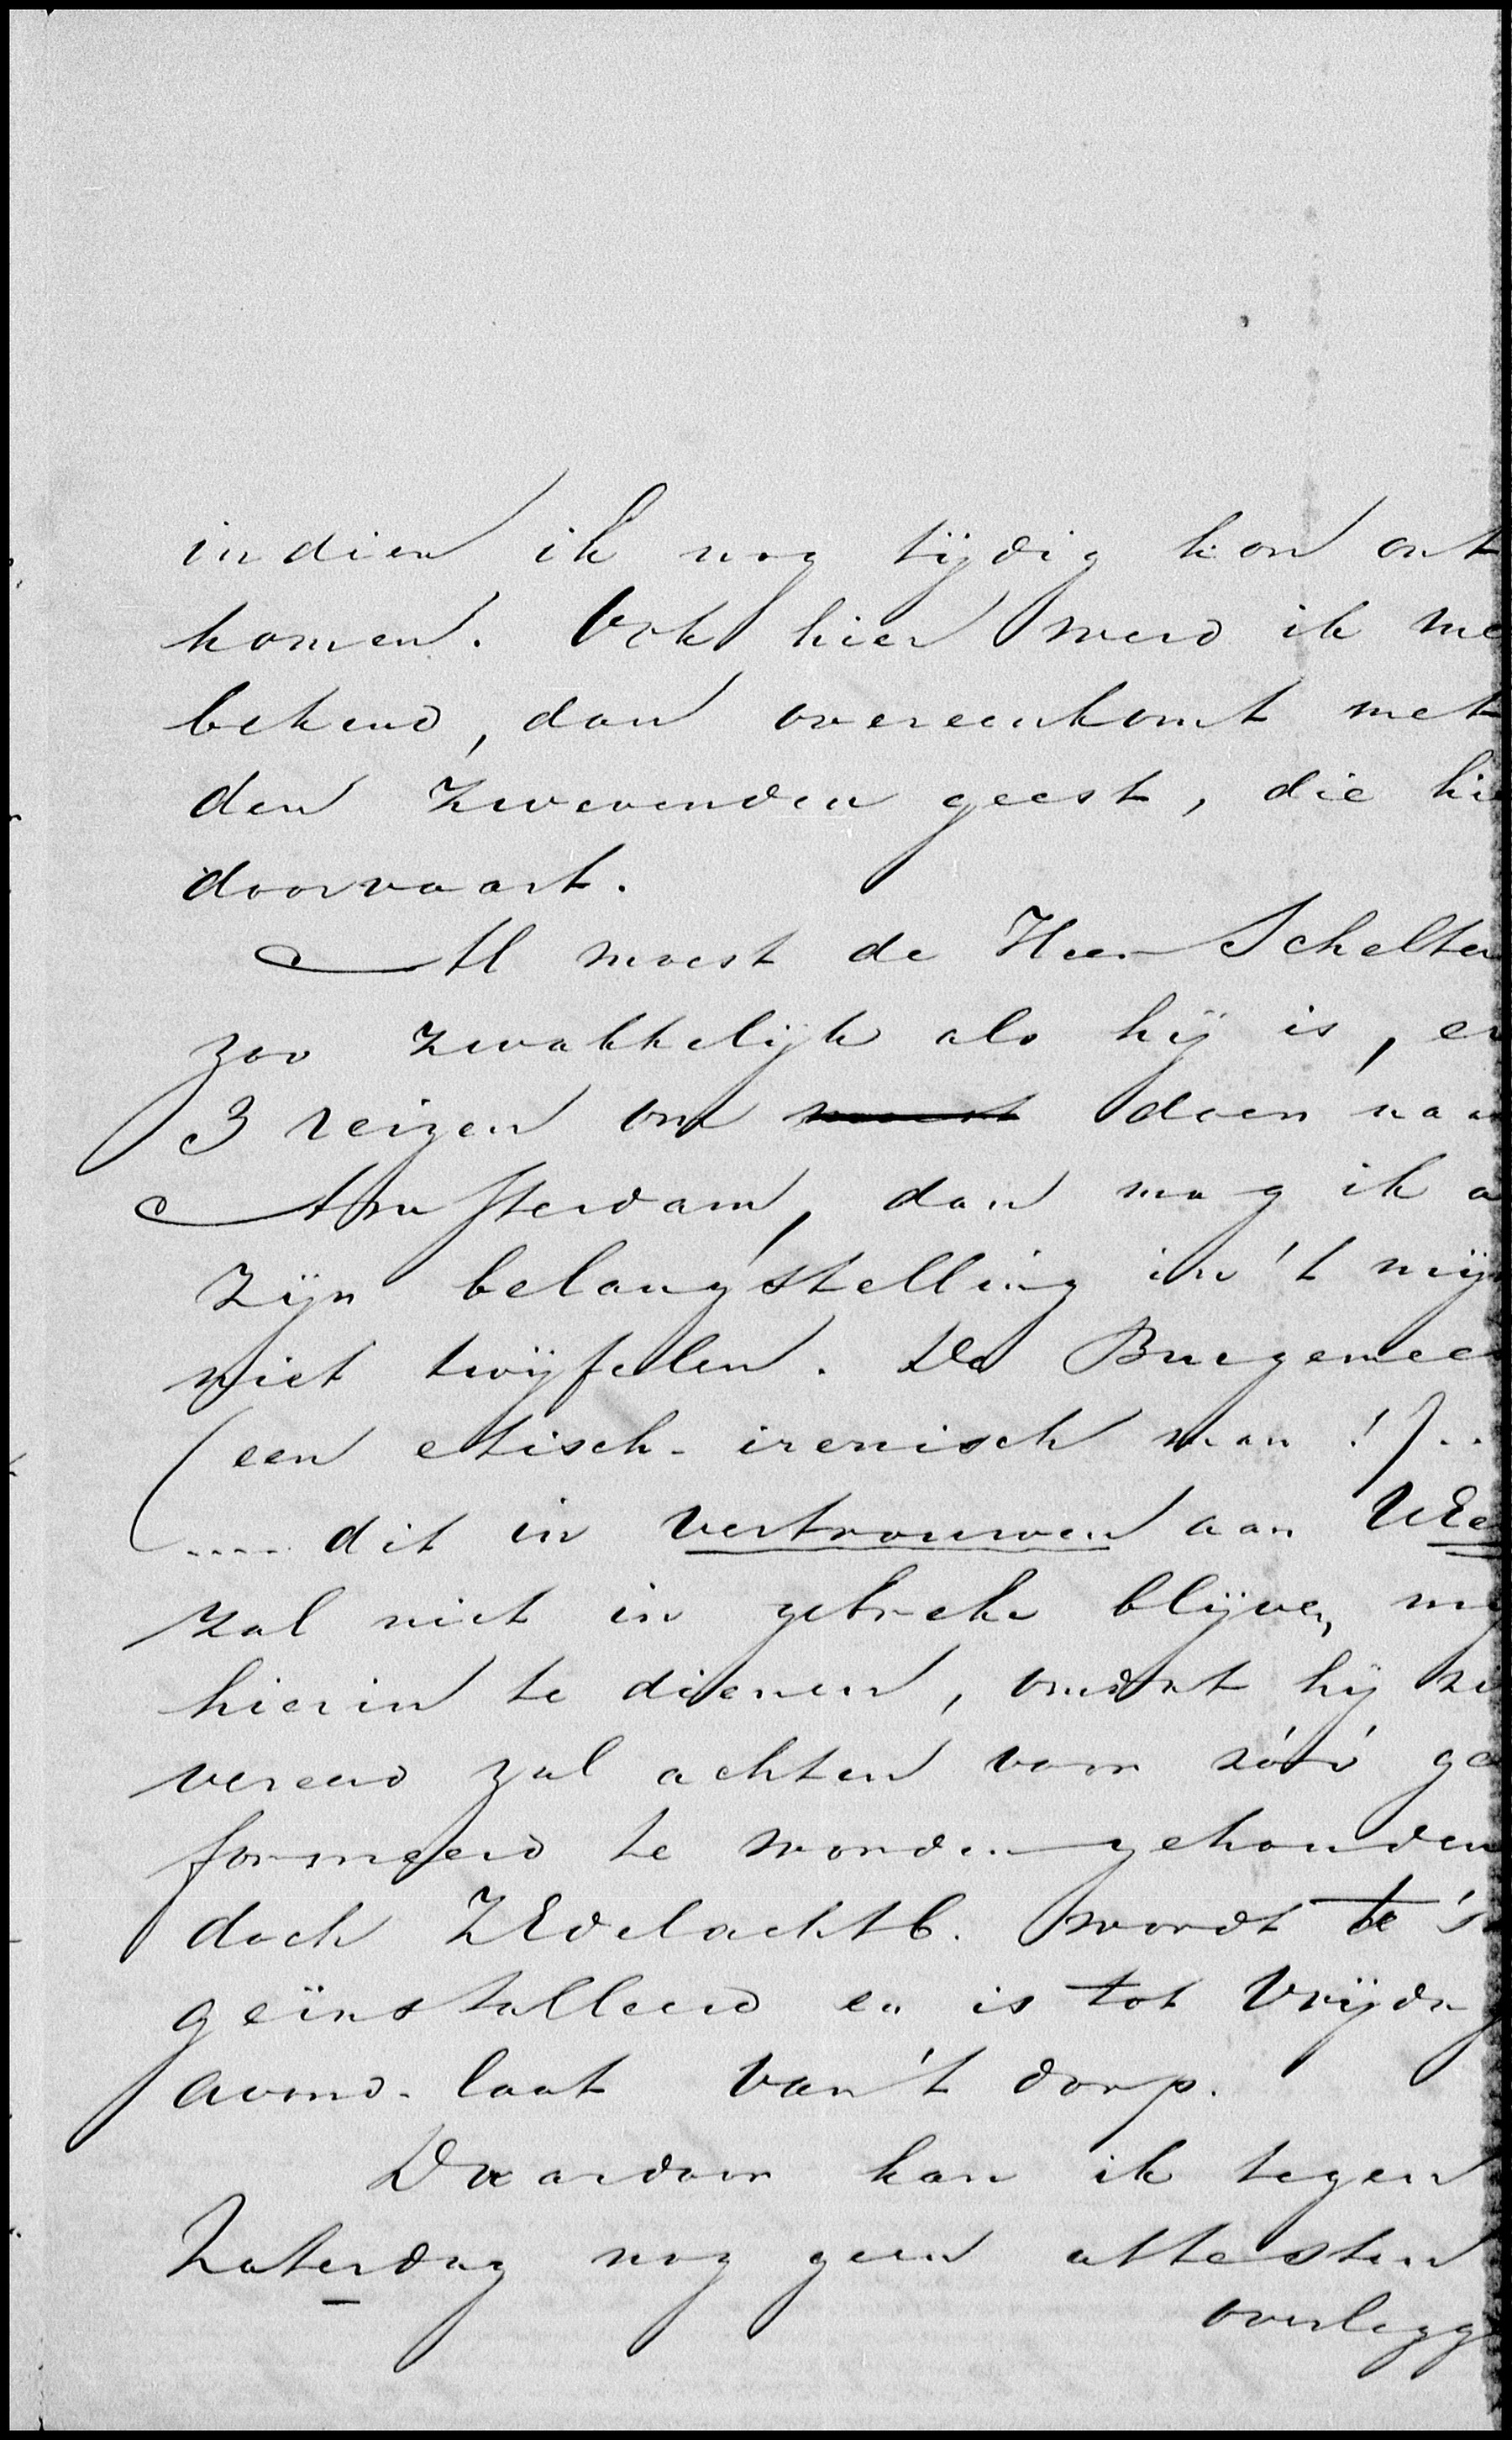 indien ik nog tijdig kon ont
komen. Ook hier werd ik me
bekend, dan overeenkomt met
den zwevenden geest, die hi
doorvaart.
Al moest de Heer Schelte
zoo zwakkelijk als hij is, er
3 reizen om moest doen naa
Amsterdam, dan mag ik a
zijn belangstelling in 't mij
niet twijfelen. De Burgemee
(een etisch-irenisch man!)..
.... dit in vertrouwen aan UEe
zal niet in gebreke blijven, mij
hierin te dienen, omdat hij zi
vereerd zal achten voor zóó ge
formeerd te worden gehouden
doch ZEdelachtb. wordt te 's
geïnstalleerd en is tot Vrijda
avond-laat van 't dorp.
Daardoor kan ik tegen
Zaterdag nog geen attesten
overlegg